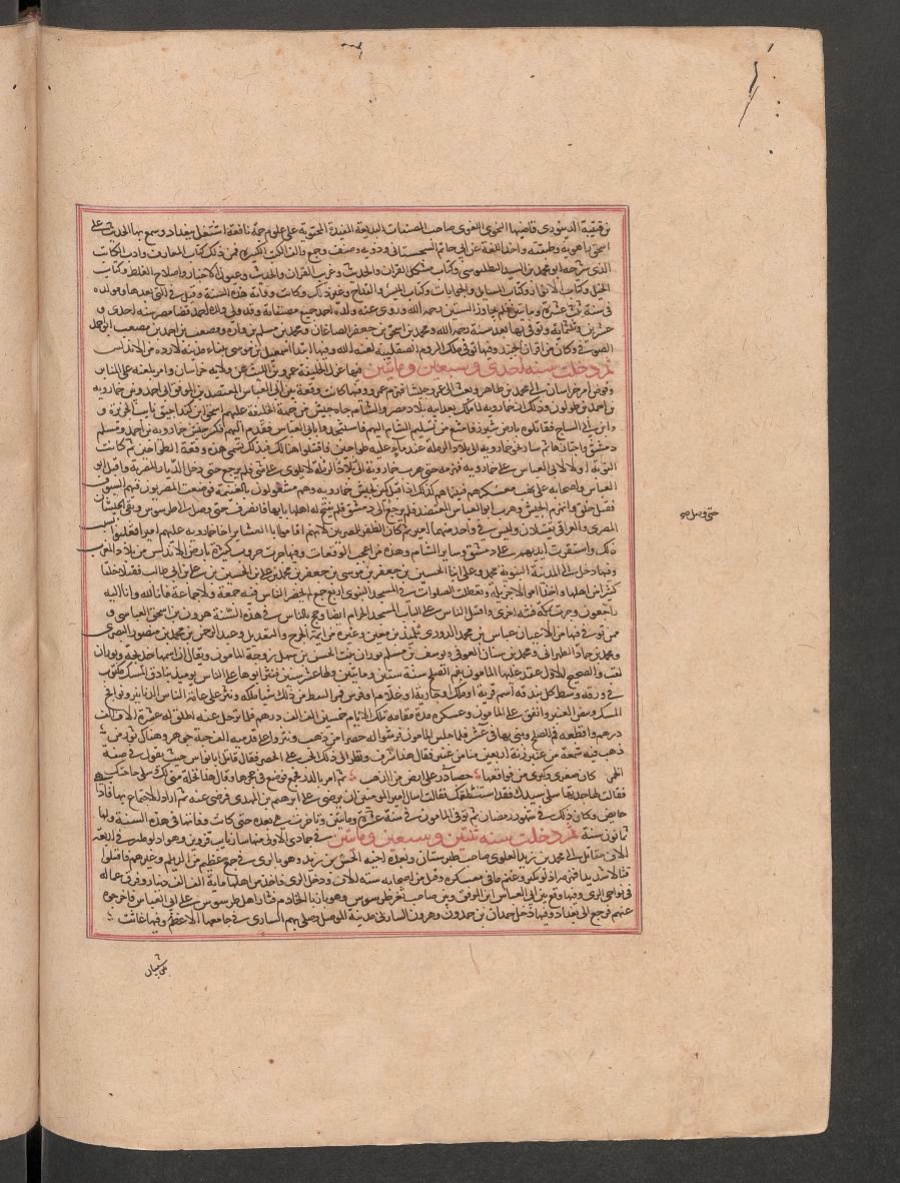 بن قتيبة الدينوري قاضيها النحوي اللغوي صاحب المصنفات البديعة المفيدة المحتوية على علوم جمة نافعة اشتغل ببغداد وسمع بها الحديث على
اسحق بن راهويه وطبقته واخذ اللغة عن ابي حاتم السجستاني وذويه وصنف وجمع والف الكتب الكثيرة فمن ذلك كتاب المعارف وادب الكاتب
الذي شرحه ابو محمد بن السيد البطليوسي وكتاب مشكل القران والحديث وغريب القران والحديث وعيون الاخبار واصلاح الغلط وكتاب
الخيل وكتاب الانوار وكتاب المسايل والجوابات وكتاب الميسر والقداح وغير ذلك وكانت وفاته هذه السنة وقيل في التي بعدها ومولده
في سنة ثلث عشرة وماتين ولم يجاوز الستين رحمه الله وروى عنه ولده احمد جميع مصنفاته وقد ولي ولده احمد قضا مصر سنه احدى و
عشرين وثلثماية وتوفي بها بعد سنة رحمه الله ومحمد بن اسحق بن جعفر الصاغاني ومحمد بن مسلم بن وارة ومصعب بن احمد بن مصعب ابو احمد
الصوفي وكان من اقران الجنيد وفيها توفي ملك الروم الصقلبية لعنه الله وفيها ابتدا اسمعيل بن موسى ببناء مدينة لاردة من الاندلس
ثم دخلت سنه احدى وسبعين وماتين فيها عزل الخليفة عمرو بن الليث عن ولاية خراسان وامر بلعنه على المنابر
وفوض امر خراسان الى محمد بن طاهر وبعث الى عمرو جيشا فهزم عمرو وفيها كانت وقعة بين ابي العباس المعتضد بن الموفق ابي احمد وبين خمارويه
بن احمد بن طولون وذلك ان خمارويه لما ملك بعد ابيه بلاد مصر والشام جاه جيش من جهة الخليفة عليهم اسحق بن كنداجيق نايب الجزيرة و
وابن ابي الساج فقاتلوه بارض شيزر فامتنع من تسليم الشام اليهم فاستنجدوا بابي العباس فقدم اليهم فكسر جيش خمارويه بن احمد وتسلم
دمشق واجتازها ثم سار خلف خمارويه الى بلاد الرملة عند ماء عليه طواحين فاقتتلوا هنالك فبذلك تسمى هذه وقعة الطواحين ثم كانت
النوبة اولا لابي العباس على خمارويه فهزمه حتى هرب خمارويه الى بلاد الرملة لا يلوي على شي فلم يرجع حتى دخل الديار المصرية واقبل ابو
العباس واصحابه على نهب معسكرهم فبينما هم كذلك اذ اقبل كمين لجيش خمارويه وهم مشغولون بالغنيمة فوضعت المصريون فيهم السيوف
فقتل خلق وانهزم الجيش وهرب ابو العباس المعتضد فلم يرجع الى دمشق فلم يفتح له اهلها بابها فانصرف حتى وصل الى طرسوس وبقي الجيشان
المصري والعراقي يقتتلان وليس في واحد منهما امير ثم كان الظفر للمصريين لانهم اقاموا ابا العشاير اخا خمارويه عليهم اميرا فغلبوا بسبب
ذلك واستقرت ايديهم على دمشق وساير الشام وهذه من اعجب الوقعات وفيها جرت حروب كثيرة بارض الاندلس من بلاد المغرب
وفيها دخل الى المدينة النبوية محمد وعلي ابنا الحسين بن جعفر بن موسى بن جعفر بن محمد بن علي بن الحسين بن علي بن ابي طالب فقتلا خلقا
كثيرا من اهلها واخذا اموالا جزيلة وتعطلت الصلوات في المسجد النبوي اربع جمع لم يحضر الناس فيه جمعة ولا جماعة فانا لله وانا اليه
راجعون وجرت بمكة فتنة اخرى واقتتل الناس على باب المسجد الحرام ايضا وحج بالناس في هذه السنة هرون بن اسحق العباسي و
ممن توفي فيها من الاعيان عباس بن محمد الدوري تلميذ بن معين وغيره من ايمة الجرح والتعديل وعبد الرحمن بن محمد بن منصور البصري
ومحمد بن حماد الطهراني ومحمد بن سنان العوفي ويوسف بن مسلم بوران بنت الحسن بن سهل زوجة المامون ويقال ان اسمها خديجة وبوران
لقب والصحيح الاول عقد عليها المامون بفم الصلح سنة ستين وماتين ولها عشر سنين فنثر ابوها على الناس يوميذ بنادق المسك مكتوب
في ورقة وسط كل بندقة اسم قرية او ملك او جارية او غلام او فرس فمن التقط من ذلك شيا ملكه ونثر على عامة الناس الدنانير ونوافج
المسك وبيض العنبر وانفق على المامون وعسكره مدة مقامه تلك الايام خمسين الف الف درهم فلما ترحل عنه اطلق له عشرة الاف الف
درهم واقطعه فم الصلح وبنى بها في عشر فلما جلس المامون فرشوا له حصرا من ذهب ونثروا على قدميه الف حبة جوهر وهناك تور من
ذهب فيه شمعة من عنبر زنة اربعين منا من عنبر فقال هذا سرف ونظر الى ذلك الحب على الحصر فقال قاتل الله ابا نواس حيث يقول في صفة
الخمر كان صغرى وكبرى من فواقعها حصباء در على ارض من الذهب ثم امر بالدر فجمع فوضع في حجرها وقال هذا نحلة مني لك سلي حاجتك
فقالت لها جدتها سلي سيدك فقد استنطقك فقالت اسال امير المومنين ان يرضى على ابرهيم بن المهدي فرضي عنه ثم اراد الاجتماع بها فاذا
حايض وكان ذلك في شهر رمضان ثم توفي المامون في سنة عشرة وماتين وتاخرت هي بعده حتى كانت وفاتها في هذه السنة ولها
ثمانون سنة ثم دخلت سنه ثنتين وسبعين وماتين في جمادى الاولى منها سار نايب قزوين وهو ادلوتكين في اربعة
الاف مقاتل الى محمد بن زيد العلوي صاحب طبرستان وبعد اخيه الحسن بن زيد وهو بالري في جمع عظيم من الديلم وغيرهم فاقتتلوا
قتالا شديدا فهزمه ادلوتكين وغنم ما في معسكره وقتل من اصحابه ستة الاف ودخل الري فاخذ من اهلها ماية الف الف دينار وفرق عماله
في نواحي الري وفيها وقع بين ابي العباس ابن الموفق وبين صاحب ثغر طرسوس وهو يازمان الخادم فثار اهل طرسوس على ابي العباس فاخرجوه
عنهم فرجع الى بغداد وفيها دخل حمدان بن حمدون وهرون الشاري مدينة الموصل وصلى بهم الشاري في جامعها الاعظم وفيها عاثت
حتى وصل صح
بنى شيبان